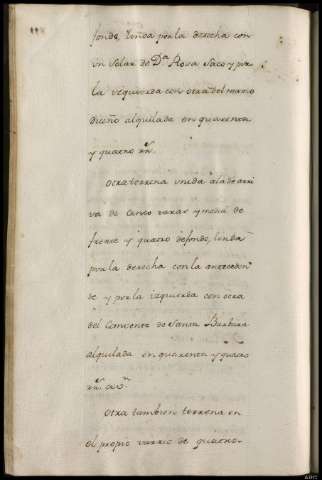 fondo, linda por la derecha con
un solar de Dª Rosa Saco y por
la yzquierda con otra del mismo
dueño alquilada en quarenta
y quatro rrˢ.
Otra terrena unida a la de arri
va de cinco varas y media de
frente y quatro de fondo, linda
por la derecha con la anteceden
te y por la izquierda con otra
del Convento de Santa Barbara
alquilada en quarenta y quatro
rrˢ.
Otra tambien terrena en
el propio varrio de quatro